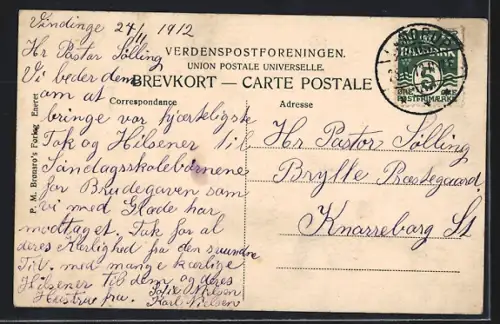 Vindinge 24/11 1912
Hr Pastor Sølling
Vi beder dem
om at
bringe vor hjærteligste
Tak og Hilsener til
Søndagsskolebørnene
for Brudegaven som
vi med Glæde har
modtaget. Tak for al
deres Kærlighed fra den svundne
Tid. med mange kærlige
Hilsener til dem og deres
Hustru fra.
Sofie Nielsen
Karl Nielsen
VERDENSPOSTFORENINGEN.
UNION POSTALE UNIVERSELLE.
BREVKORT – CARTE POSTALE
Correspondance
Adresse
Hr. Pastor Sølling
Brylle Præstegaard
Knarreborg St
P. M. Bromsro's Forlag. Eneret
DANMARK
5
POSTFRIMÆRKE